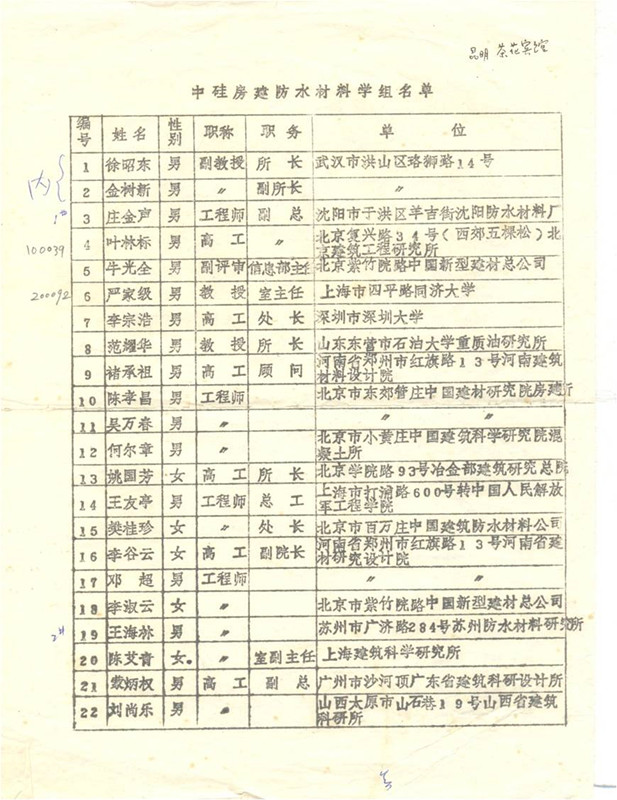 昆明 茶花宾馆
中硅房建防水材料学组名单
编号 姓名 性别 职称 职务 单位
内
1 徐昭东 男 副教授 所长 武汉市洪山区珞狮路14号
2 金树新 男 〃 副所长 〃
3 庄金声 男 工程师 副总 沈阳市于洪区羊吉街沈阳防水材料厂
100039
4 叶林标 男 高工 〃 北京复兴路34号(西郊五棵松)北
京建筑工程研究所
5 牛光全 男 副评审 信息部主任 北京紫竹院路中国新型建材总公司
200092
6 严家级 男 教授 室主任 上海市四平路同济大学
7 李宗浩 男 高工 处长 深圳市深圳大学
8 范耀华 男 教授 所长 山东东营市石油大学重质油研究所
9 褚承祖 男 高工 顾问 河南省郑州市红旗路13号河南建筑
材料设计院
10 陈孝昌 男 工程师 北京市东郊管庄中国建材研究院房建所
11 吴万春 男 〃 〃 〃
12 何尔章 男 〃 北京市小黄庄中国建筑科学研究院混
凝土所
13 姚国芳 女 高工 所长 北京学院路93号冶金部建筑研究总院
14 王友亭 男 工程师 总工 上海市打浦路600号转中国人民解放
军工程学院
15 桂珍 女 〃 处长 北京市百万庄中国建筑防水材料公司
16 李谷云 女 高工 副院长 河南省郑州市红旗路13号河南省建
材研究设计院
17 邓超 男 工程师 〃 〃
18 李淑云 女 〃 北京市紫竹院路中国新型建材总公司
19 王海林 男 〃 苏州市广济路284号苏州防水材料研究所
20 陈艾青 女 〃 室副主任 上海建筑科学研究所
21 炳权 男 高工 副总 广州市沙河顶广东省建筑科研设计所
22 刘尚乐 男 〃 山西太原市山石巷19号山西省建筑
科研所